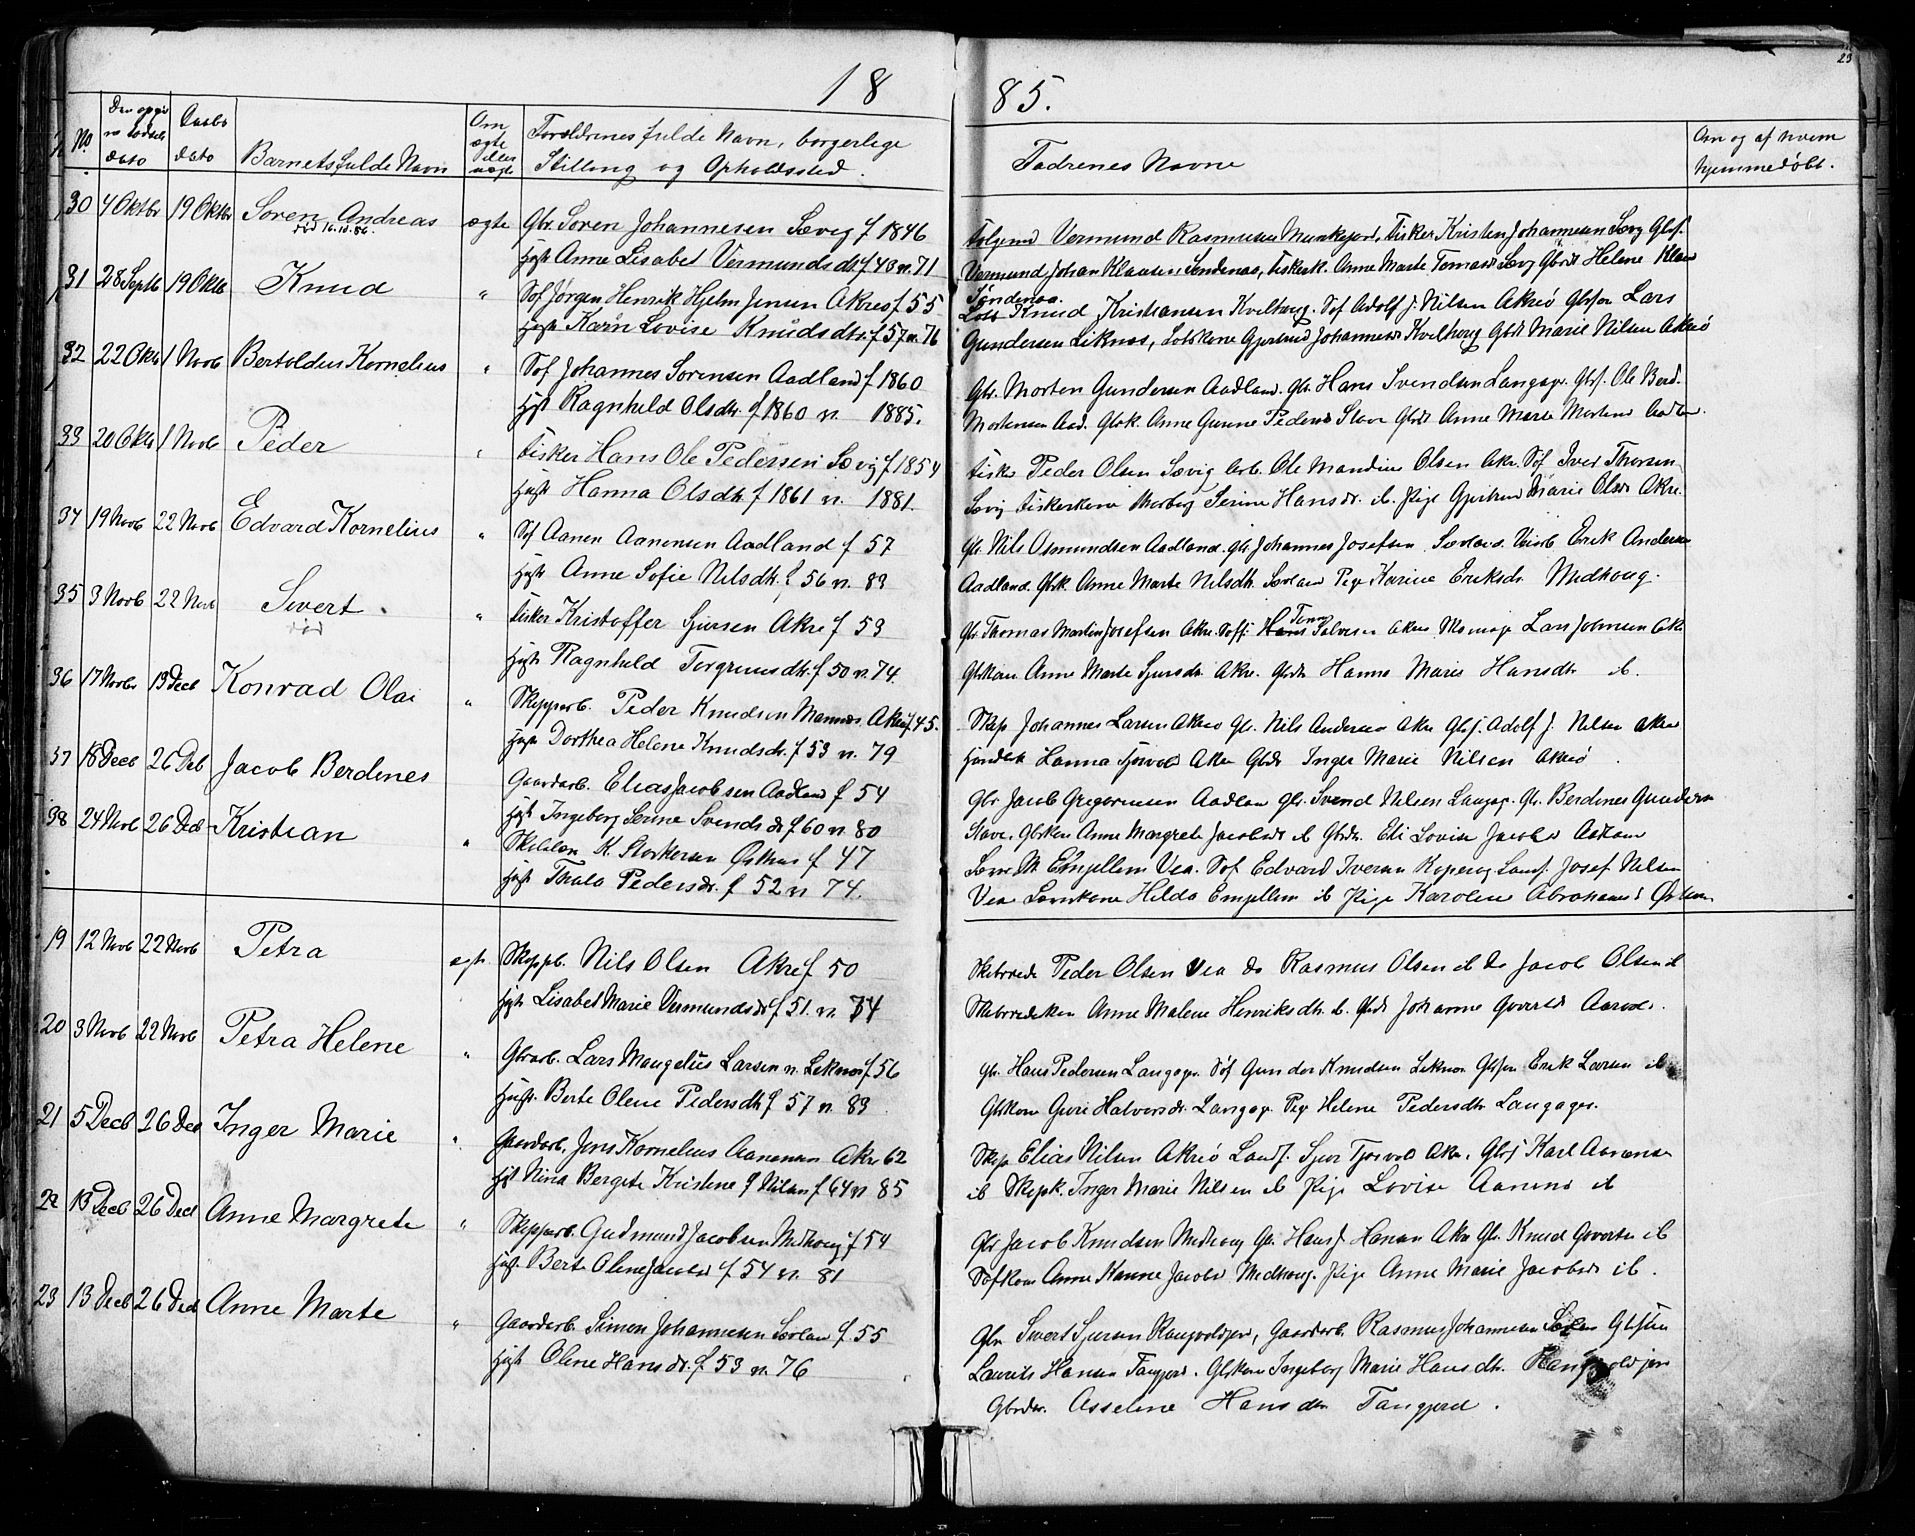 23
18 85.
No. Den opgivne Fødselsdato Daabsdato Barnets fulde Navn Om ægte eller uægte Forældrenes fulde Navn, borgerlige Stilling og Opholdssted.
Fadrenes Navne
Om og af hvem hjemmedøbt.
30 4 Oktbr 19 Oktbr Soren Andreas ægte Gbr. Soren Johannesen Sævig f 1846
død 16.10.86.
Hst Anne Lisabet Vermundsdtr. f 48 n. 71
Vermund Rasmussen Munkejord, Fisker Kristen Johannesen Sævig Gbsf.
Vermund Johan Klausen Søndenaa, Fiskerk. Anne Marte Tomasd Sævig Gbrdt Helene Klaus
Søndenaa.
31 28 Septb 19 Oktb Knud " Søf Jørgen Henrik Hjelm Jensen Akre f 55
Hst Karn Lovise Knudsdtr. f 57 n. 76
Lods Knud Kristiansen Kvelhoug. Søf Adolf J. Nilsen Akreø Gbsøn Lars
Gundersen Liknæs, Lotskone Gjertrud Johannesd Kvelhoug Gbdt Marie Nilsen Akreø
32 22 Oktb 1 Novb Bertoldus Kornelius " Søf Johannes Sorensen Aadland f 1860
Hst Ragnhild Olsdtr. f 1860 n. 1885.
Gbr. Morten Gundersen Aadland. Gbr. Hans Svendsen Langager. Gbsf. Ole Berd.
Mortensen Aad. Gbk. Anne Gurine Pedersd Stave Gbdt Anne Marte Mortensd Aadlan.
33 20 Oktb 1 Novb Peder " Fisker Hans Ole Pedersen Sævig f 1854
Hst Hanna Olsdtr. f 1861 n. 1881.
Fisker Peder Olsen Sævig Arb. Ole Mandius Olsen Akre Søf Iver Thorsen
Sævig Fiskerkone Serine Hansdr. ib. Pige Gjertrud Marie Olsdr Akre.
34 19 Novb 22 Novb Edvard Kornelius " Søf Aanen Aanensen Aadland f 57
Hst Anne Sofie Nilsdtr. f 56 n. 83
Gbr. Nils Osmundsen Aadland. Gbr Johannes Josefsen Erik Andersen
Aadland. Gbsk. Anne Marte Nilsdtr. Pige Karine Eriksdr Medhoug.
35 3 Novb 22 Novb Sivert. " Fisker Kristoffer Sjursen Akre f 53
død
Hst Ragnhild Torgrimsdtr. f 50 n. 74.
Gbr. Thomas Martin Josefsen Akre. Søf. Tønnes Salvesen Akre Lars Johnsen Akre
Gbskone Anne Marte Sjursdr Akre. Gbrdtr Hanne Marie Hansdtr ib.
36 17 Novbr 13 Decb Konrad Olai " Skipperb. Peder Knudsen Mannes Akre f 45.
Hst Dorthea Helene Knudsdr. f 53 n. 79
Skip Johannes Larsen Akreø Gbr. Nils Andersen Akre Gbsf. Adolf J. Nilsen Akre
Lanna Akre Gbdr Inger Marie Nilsen Akreø
37 18 Decb 26 Deb Jacob Berdenes Gaardarb. Elias Jacobsen Aadland f 54
Hst Ingeborg Serine Svendsdr f 60 n. 80
Gbr Jacob Gregoriussen Aadlan Gbr. Svend Nilsen Langag. Gbr. Berdenes Gundersen
Stave. Gbskon Anne Margrete Jacobsdr ib Gbrdr. Eli Lovise Jacobsd Aadlan
38 24 Novb 26 Decb Kristian " K. Storkersen Østhus f 47
Hst Thala Pedersdr. f 52 n 74.
M. Engellsen Vea. Søf. Edvard Iversen Kopervig. Josef Nilsen
Vea Hilda Engellsen ib Pige Karoline Abrahamsd Østhus
19 12 Novb 22 Novb Petra ægte Skipperb. Nils Olsen Akre f 50
Hst Lisabet Marie Vermundsdr f 51. n. 74
Peder Olsen Vea do Rasmus Olsen ib do Jacob Olsen ib
Anne Malene Henriksdtr. ib. Gbdr Johanne Govertsd
20 3 Novb 22 Novb Petra Helene " Gbrarb. Lars Mangelus Larsen n. Leknes f 56
Hst. Berte Olene Pedersdtr f 57 n. 83
Gbr. Hans Pedersen Langager. Søf Gunder Knudsen Liknæs Gbsøn Erik Larsen ib
Gbskone Guri Halvorsdr. Langager. Pige Helene Pedersdtr Langager.
21 5 Decb 26 Dec Inger Marie " Gaardarb. Jens Kornelius Aanensen Akre 62
Hst Nina Bergete Kristine f Nilsen f 64 n. 85
Skip Elias Nilsen Akreø Landh. Sjur Tjosvol Akre. Gbsf Karl Aanense
ib Skipk. Inger Marie Nilsen ib Pige Lovise Aanensd ib
22 13 Decb 26 Decb Anne Margrete " Skipperb. Gudmund Jacobsen Medhoug f 54
Hst. Berte Oline Jacobsd f 54 n. 81
Gbr Jacob Knudsen Medhoug Gbr. Hans J. Hansen Akre Gbr. Knud Govertsen ib
Søfkone Anne Hanne Jacobsd Medhoug. Pige Anne Marie Jacobsdr ib.
23 13 Decb 26 Decb Anne Marte " Gaardarb. Simon Johannesen f. 55
Hst Olene Hansdr. f 53 n. 76
Gbr. Sivert Sjursen Rangvoldjøn, Gaardarb. Rasmus Johannesen
Laurits Hansen Tangjerd. Gbskone Ingeborg Marie Hansdtr.
Gbrdtr. Asseline Hansdtr Tangjerd.